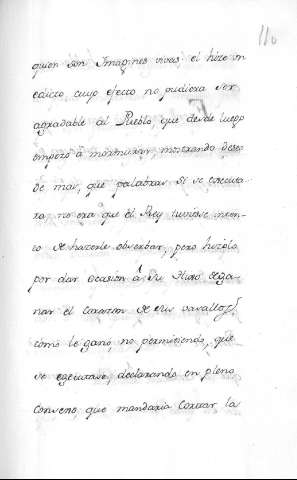 110
quien son Imagines vivas: el hizo un
edicto, cuyo efecto no pudiera ser
agradable al Pueblo, que desde luego
empezó a murmurar, mostrando deseo
de mas, que palabras si se executa
ra, no era que el Rey tuviese inten-
to de hacerle observar, pero hizolo
por dar ocasion á su Hixo de ga-
nar el Corazon de sus vasallos
como le ganó, no permitiendo, que
se egecutase, declarando en pleno
Consejo, que mandaria cortar la